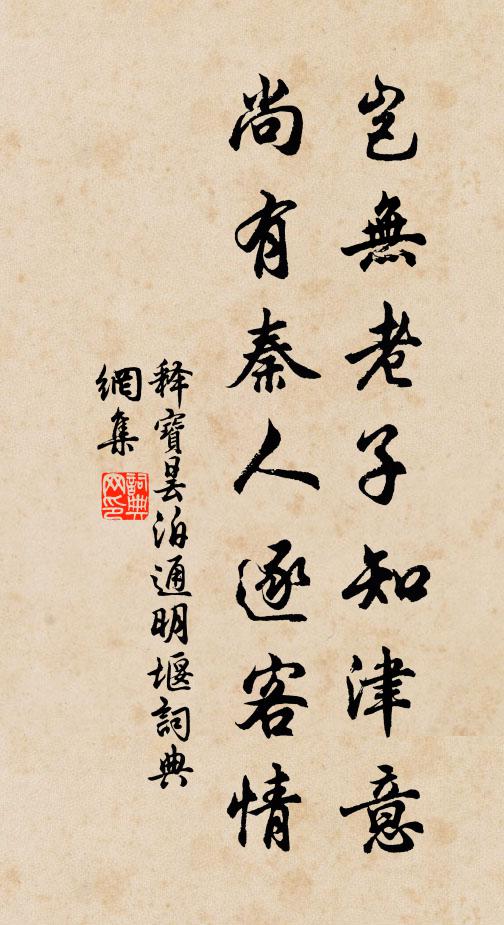 豈無老子知津意
尚有秦人逐客情
释寶曇泊通明堰詞典
網集
詞典网印